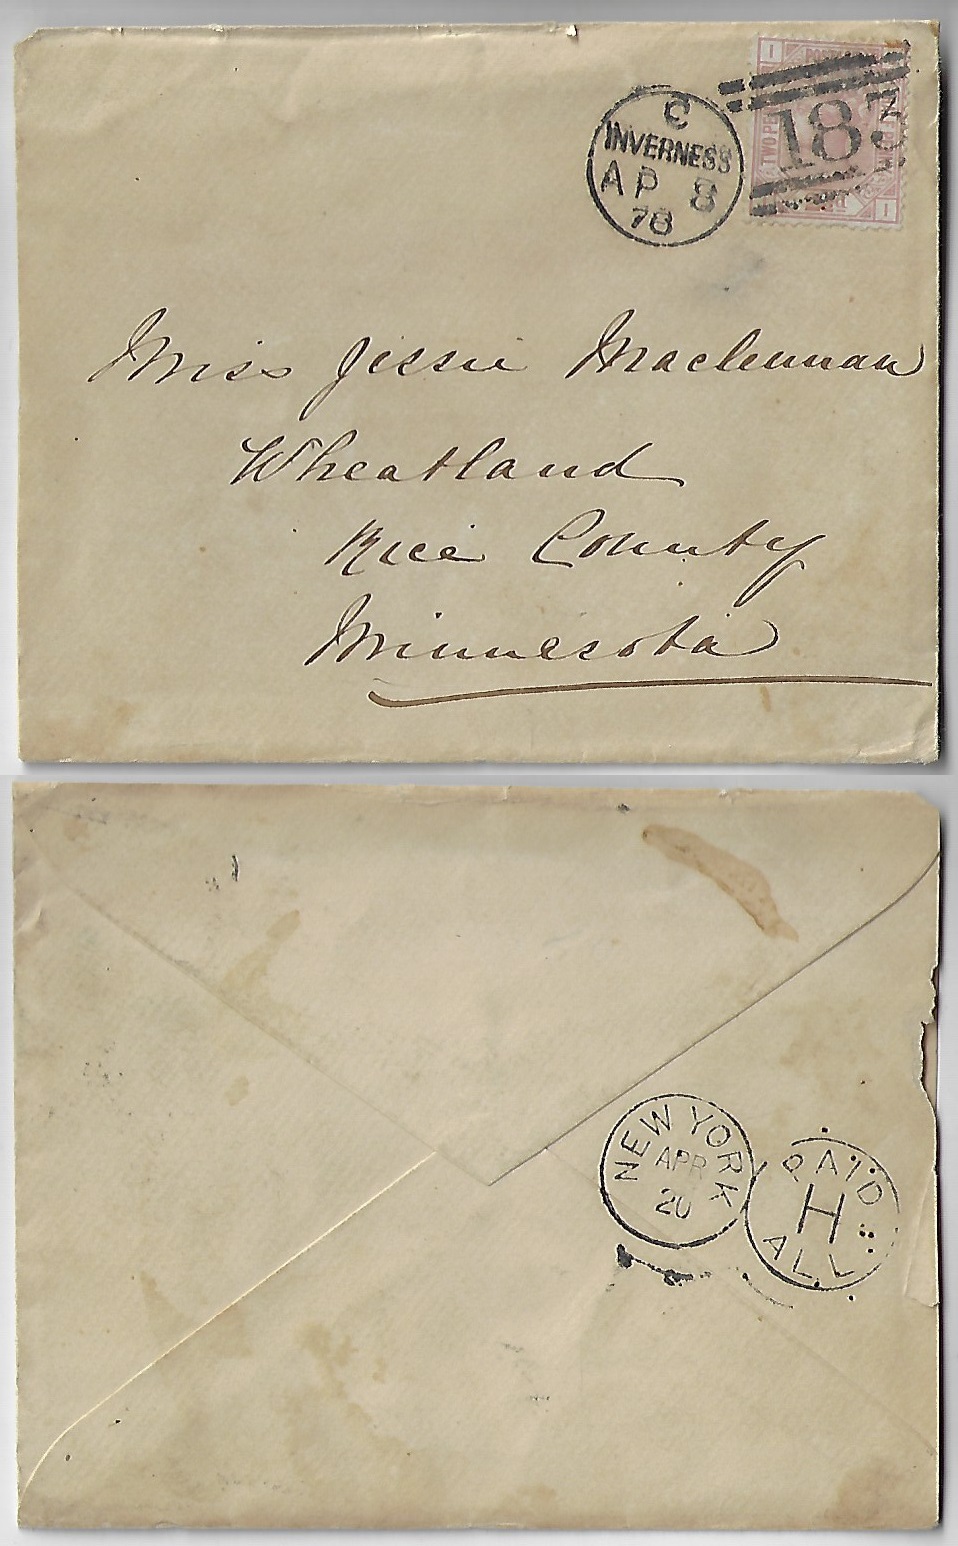 C
INVERNESS
AP 8
78
183
1
TWO PE
1
Miss Jessie Maclennan
Wheatland
Rice County
Minnesota
NEW YORK
APR
20
PAID
H
ALL